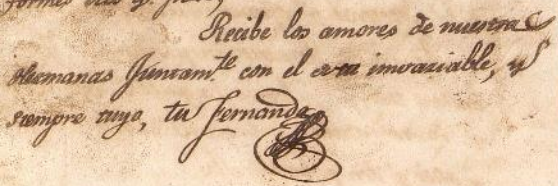 Recibe los amores de nuestra
Hermanas Juntam.te con el invariable, y
siempre tuyo, tu Fernando